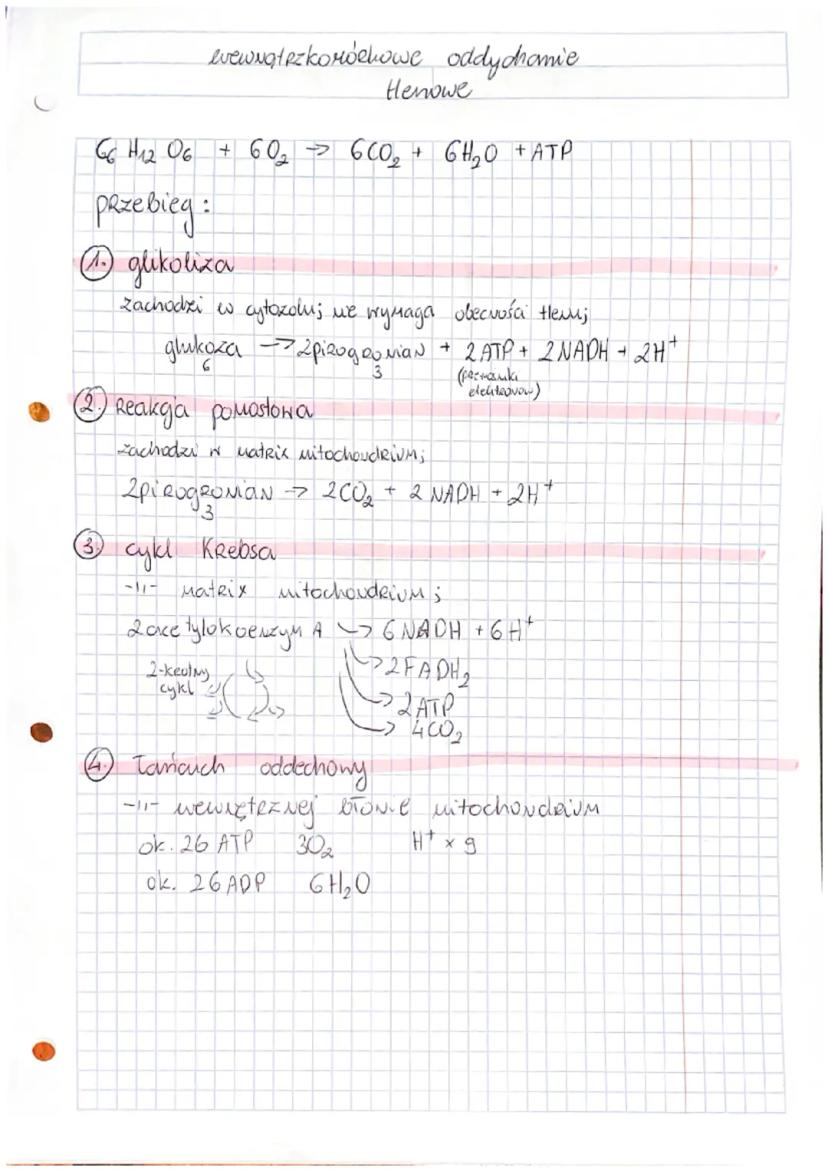 wewnątrzkomórkowe oddychanie
tlenowe
C6 H12 O6 + 6O2 → 6CO2 + 6H2O + ATP
przebieg:
1. glikoliza
zachodzi w cytozolu; nie wymaga obecności tlenu;
glukoza → 2pirogronian + 2ATP + 2NADH + 2H+
6 3 (przenośniki
elektronów)
2. Reakcja pomostowa
zachodzi w matrix mitochondrium;
2pirogronian → 2CO2 + 2 NADH + 2H+
3
3. cykl Krebsa
-11- matrix mitochondrium;
2acetylokoenzym A → 6NADH + 6H+
2-krotny → 2FADH2
cykl → 2ATP
→ 4CO2
4. Łańcuch oddechowy
-11- wewnętrznej błonie mitochondrium
ok. 26 ATP 3O2 H+ x 9
ok. 26 ADP 6H2O